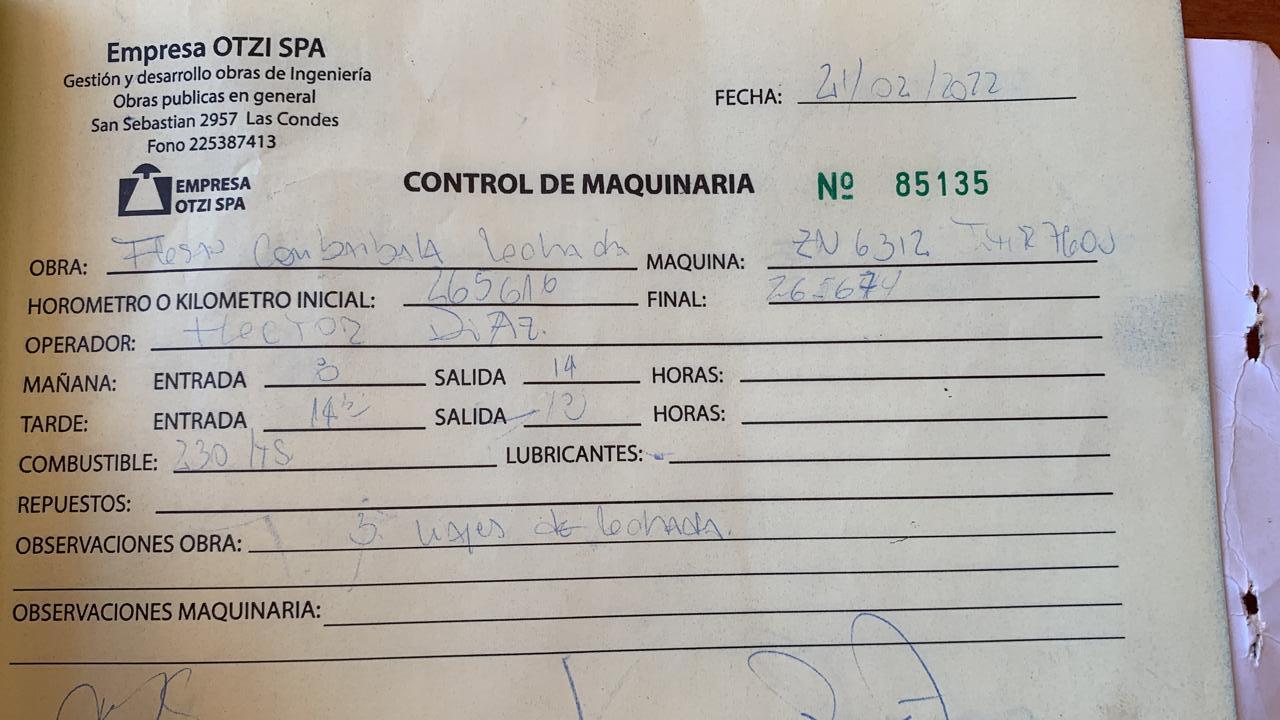 Empresa OTZI SPA
Gestión y desarrollo obras de Ingeniería
Obras publicas en general
San Sebastian 2957 Las Condes
Fono 225387413
FECHA: 21/02/2022
EMPRESA
OTZI SPA
CONTROL DE MAQUINARIA Nº 85135
OBRA: lechada MAQUINA: ZN 6312
HOROMETRO O KILOMETRO INICIAL: 265616 FINAL: 265674
OPERADOR: HECTOR DiAz.
MAÑANA: ENTRADA 8 SALIDA 14 HORAS:
TARDE: ENTRADA SALIDA HORAS:
COMBUSTIBLE: 230 lts LUBRICANTES: -
REPUESTOS:
OBSERVACIONES OBRA: 3. viajes de lechada.
OBSERVACIONES MAQUINARIA: